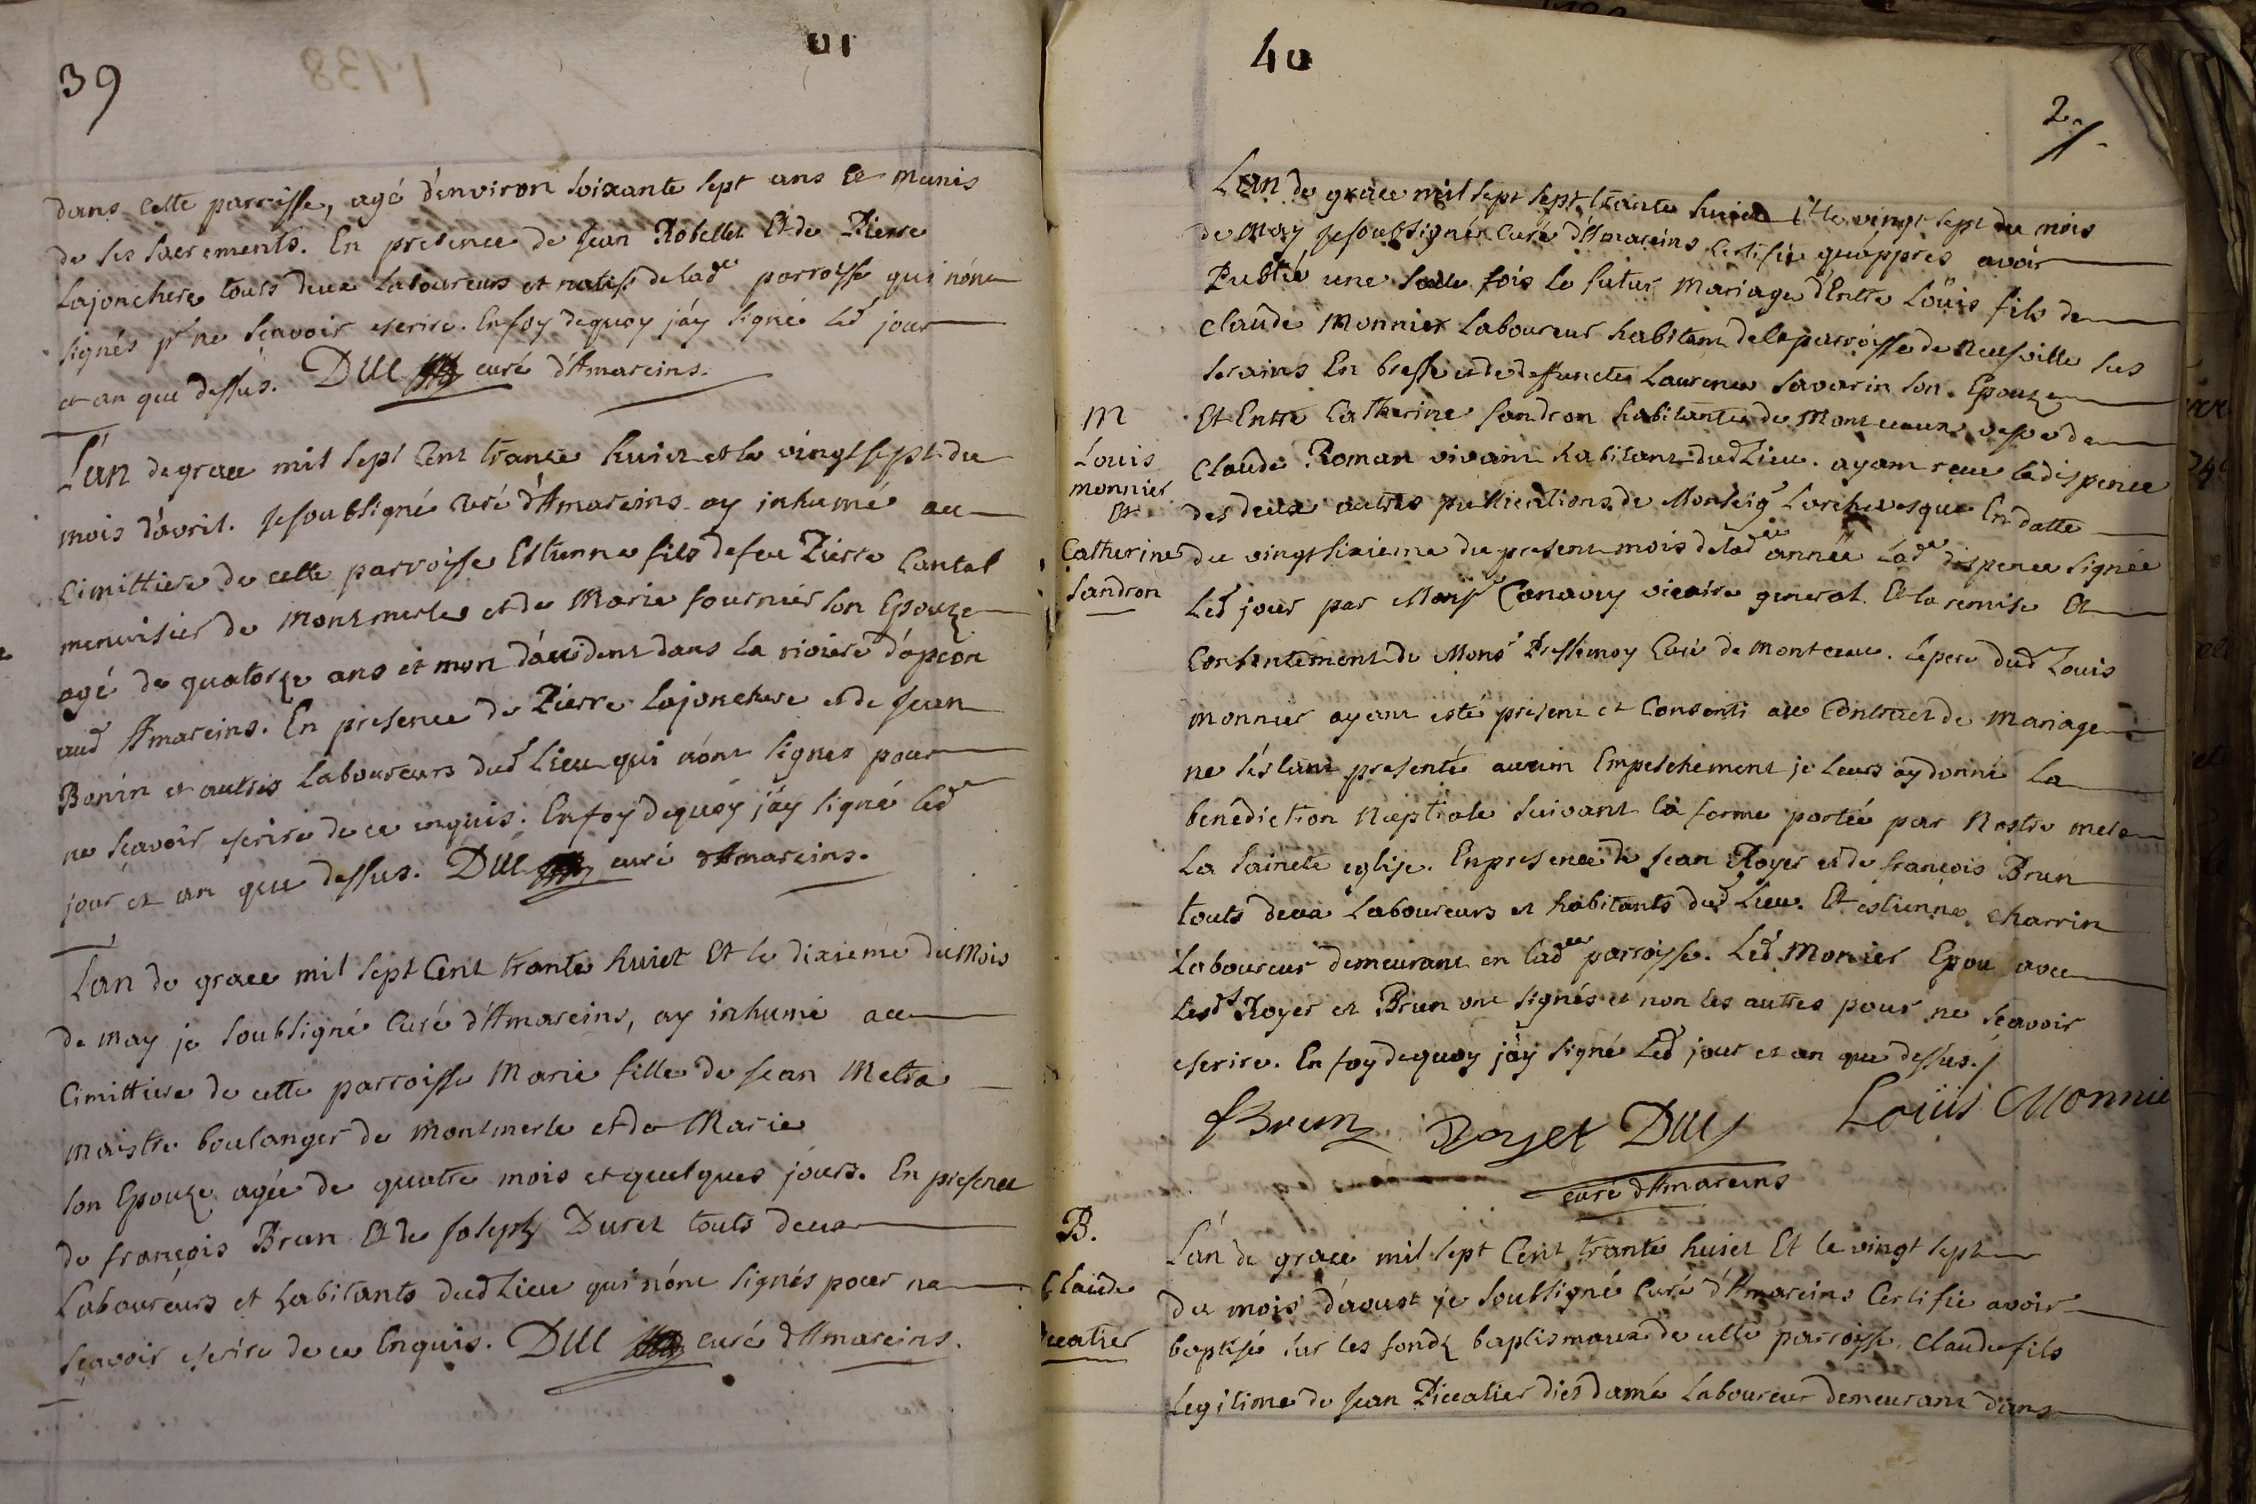 39
dans cette parroisse, agé d'environ soixante sept ans et munis
de ses sacrements. En presence de Jean Robellet Et de Pierre
Lajonchere touts deux Laboureurs et natifs de lade parroisse qui n'ône
signés pr ne scavoir escrire. En foy dequoy j'ay signé led jour
et an que dessus. DUC curé d'Amareins.
L'an de grace mil sept Cent trante huict et le vingt sept du
mois d'avril. Je soubsigné curé d'Amareins ay inhumé au
Cimittiere de cette parroisse Estienne fils de feu Pierre Cantal
menuisier de Montmerle et de Marie fournier son Epouze
agé de quatorze ans et mort d'accident dans la riviere d'apeon
aud Amareins. En presence de Pierre Lajonchere et de Jean
Bonin et autres Laboureurs dud Lieu qui n'ont signés pour
ne scavoir escrire de ce enquis. En foy dequoy j'ay signé led
jour et an que dessus. DUC curé d'Amareins.
L'an de grace mil sept Cent trante huict Et le dixieme du Mois
de may je soubsigné Curé d'Amareins, ay inhumé au
Cimittiere de cette parroisse Marie fille de Jean Metra
maistre boulanger de Montmerle et de Marie
son Epouze agée de quatre mois et quelques jours. En presence
de françois Brun Et de Joseph Duret touts deux
Laboureurs et habitants dud Lieu qui n'ône signés pour ne
scavoir escrire de ce Enquis. DUC curé d'Amareins.
40
2
L'an de grace mil sept sept trante huict Et le vingt sept du mois
de May Je soubsigné Curé d'Amareins Certifie qu'appres avoir
Publié une seule fois le futur Mariage d'Entre Loüis fils de
Claude Monnier Laboureur habitant de la parroisse de Neufville Les
Serains En bresse et de deffuncte Laurence Savarin son Epouze
Et Entre Catherine Sandron habitante de Montceaux vefve de
Claude Roman vivant habitant dud Lieu. ayant reçue la dispence
des deux autres publications de Monseigr Larchevesque En datte
du vingt sixieme du present mois de lade année Lade dispence signée
Led jour par Monsr Canavey vicaire general. Et la remise Et
Consentement de Monsr Pressinoy Curé de Montceau. Le pere dud Louis
Monnier ayant esté present et Consenti au Contract de Mariage
ne s'éstant presenté aucun Empeschement je leurs ay donné La
benediction Nuptiale suivant la forme portée par Nostre mere
La saincte eglise. En presence de Jean Royer et de françois Brun
touts deux Laboureurs et habitants dud Lieu. Et estienne Charrin
Laboureur demeurant en lade parroisse. Led Monier Epou avec
lesds Royer et Brun ont signés et non les autres pour ne scavoir
escrire. En foy dequoy j'ay signé Led jour et an que dessus.
M
Louis
Monnier
Et
Catherine
Sandron
fBrun Royet DUC Loüis Monnie
curé d'Amareins
B.
Claude
L'an de grace mil sept Cent trante huict Et le vingt sept
du mois d'aoust je soubsigné Curé d'Amareins Certifie avoir
baptisé sur les fondz baptismaux de cette parroisse Claude fils
Legitime de Jean Piccatier dict damé Laboureur demeurant dans